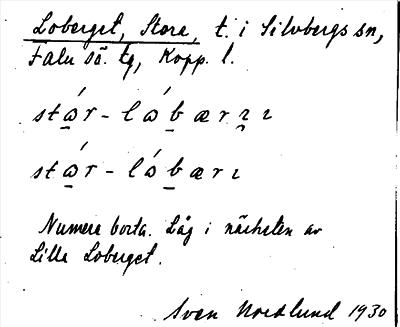 Loberget, Stora, t. i Silvbergs sn,
Falu sö. tg, Kopp. l.
stɷ́r - lɷ́bærɪɪ
stɷ́r - lɷ́bærɪ
Numera borta. Låg i närheten av
Lilla Loberget.
Sven Nordlund 1930